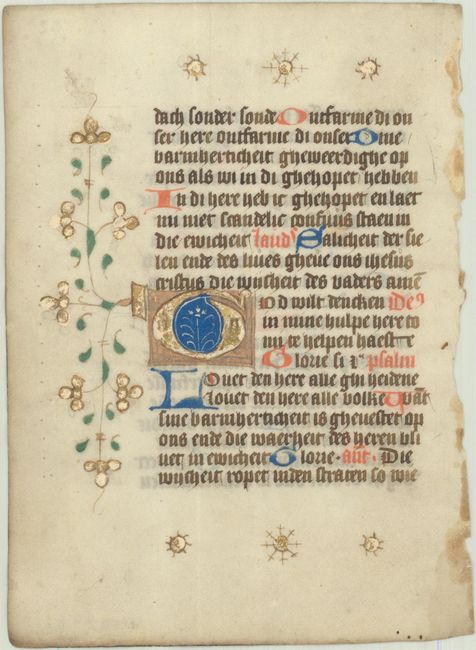 dach sonder sonde Ontfarme di on
ser here ontfarme di onser O me
barmherticheit ghewerdighe op
ons als wi in di ghehopet hebben
In di here heb ic ghehopet en laet
mi niet scandelic confuus staen in
die ewicheit lauds Salicheit der sie
len ende des lives gheve ons ihesus
cristus die wijsheit des vaders amē
God wilt dencken ides
in mine hulpe here to
mi te helpen haest te
Glorie si psalm
Lovet den here alle ghi heidene
lovet den here alle volke Want
sine barmherticheit is ghevestet op
ons ende die waerheit des heren bli
vet in ewicheit Glorie. ant. Die
wijsheit ropet inden straten so wie